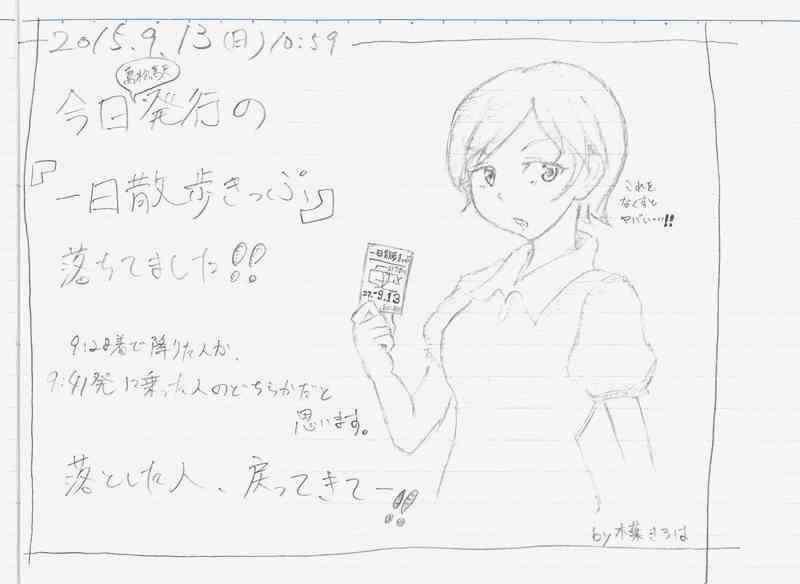 2015.9.13(日)10:59
今日発行の
『一日散歩きっぷ』
落ちてました!!
9:28着で降りた人か、
9:41発に乗った人のどちらかだと
思います。
落とした人、戻ってきてー!!
これを
なくすと
ヤバい…!!
一日散歩きっぷ
27.-9.13